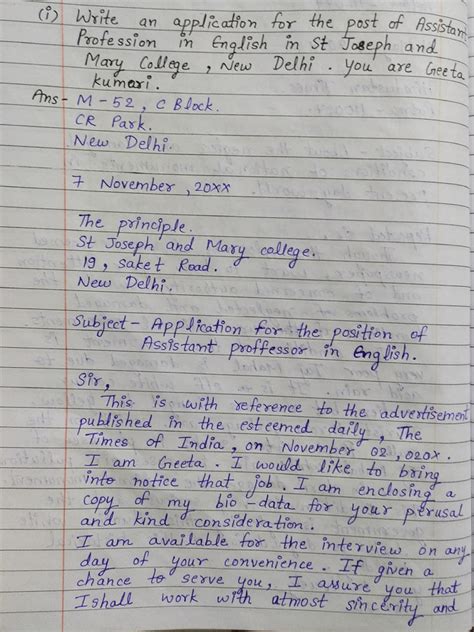 (i) Write an application for the post of Assistant
Profession in English in St Joseph and
Mary College, New Delhi. You are Geeta
Kumari.
Ans - M-52, C Block.
CR Park.
New Delhi.
7 November, 20xx
The principle.
St Joseph and Mary college.
19, Saket Road.
New Delhi.
Subject - Application for the position of
Assistant proffessor in English.
Sir,
This is with reference to the advertisement
published in the esteemed daily, The
Times of India, on November 02, 020x.
I am Geeta. I would like to bring
into notice that job. I am enclosing a
copy of my bio-data for your perusal
and kind consideration.
I am available for the interview on any
day of your convenience. If given a
chance to serve you, I assure you that
I shall work with atmost sincerity and